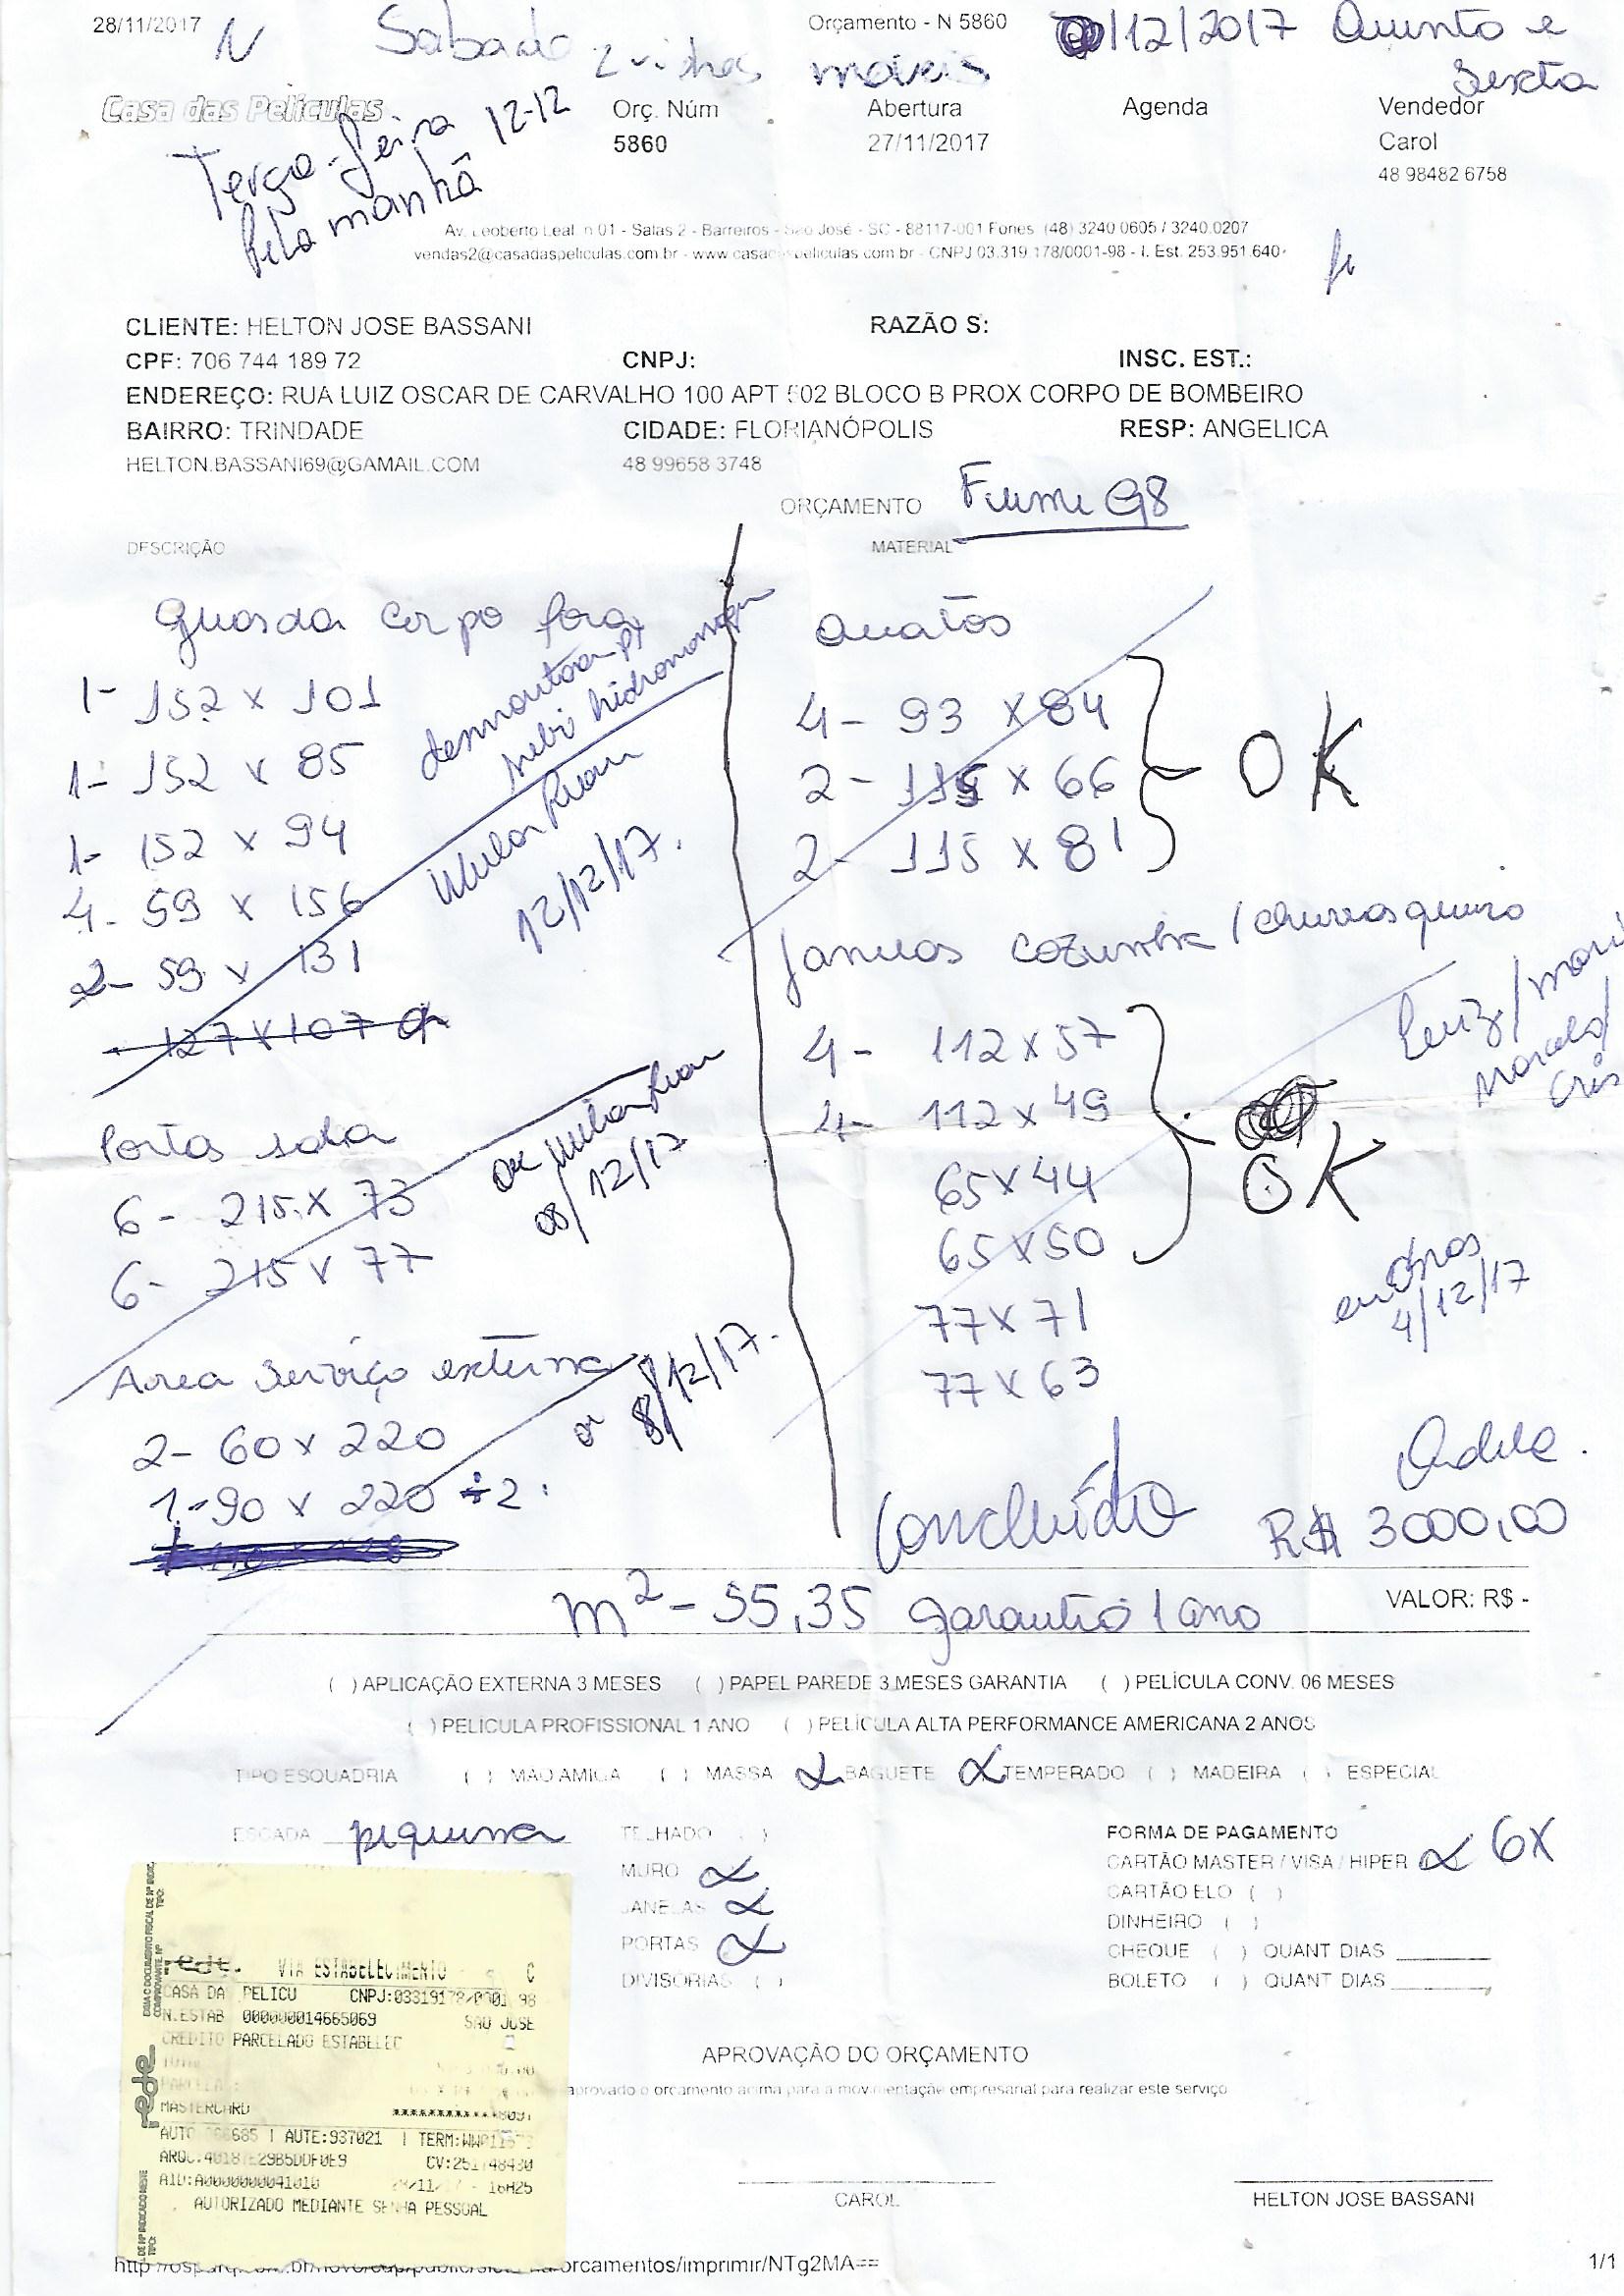 28/11/2017
Orçamento - N 5860
/12/2017 Quinta e
Sexta
N Sabado 2 vidros moveis
Casa das Películas
Terça-feira 12-12
Pela manhã
Orç. Núm
5860
Abertura
27/11/2017
Agenda
Vendedor
Carol
48 98482 6758
Av. Leoberto Leal, n 01 - Salas 2 - Barreiros - São José - SC - 88117-001 Fones (48) 3240.0605 / 3240.0207
vendas2@casadaspeliculas.com.br - www.casadaspeliculas.com.br - CNPJ 03.319.178/0001-98 - I. Est. 253.951.640-
CLIENTE: HELTON JOSE BASSANI RAZÃO S:
CPF: 706 744 189 72 CNPJ: INSC. EST.:
ENDEREÇO: RUA LUIZ OSCAR DE CARVALHO 100 APT 502 BLOCO B PROX CORPO DE BOMBEIRO
BAIRRO: TRINDADE CIDADE: FLORIANÓPOLIS RESP: ANGELICA
HELTON.BASSANI69@GAMAIL.COM 48 99658 3748
ORÇAMENTO Fume G8
DESCRIÇÃO MATERIAL
Guarda corpo fora
1- 152 x 101
1- 152 x 85
1- 152 x 94
4- 59 x 156
2- 59 x 131
127 x 107
12/12/17.
Portas sala
6- 215 x 73
6- 215 x 77
08/12/17
Area Serviço externa
2- 60 x 220
1- 90 x 220 ÷2
ok 8/12/17.
Quartos
4- 93 x 84
2- 115 x 66
2- 115 x 81
OK
Janelas cozinha / churrasqueira
4- 112 x 57
4- 112 x 49
65 x 44
65 x 50
77 x 71
77 x 63
OK
Luiz/
Cris
4/12/17
Concluído
R$ 3000,00
m² - 55,35 garantia 1 ano
VALOR: R$ -
( ) APLICAÇÃO EXTERNA 3 MESES ( ) PAPEL PAREDE 3 MESES GARANTIA ( ) PELÍCULA CONV. 06 MESES
( ) PELICULA PROFISSIONAL 1 ANO ( ) PELÍCULA ALTA PERFORMANCE AMERICANA 2 ANOS
TIPO ESQUADRIA ( ) MAO AMIGA ( ) MASSA x BAGUETE x TEMPERADO ( ) MADEIRA ( ) ESPECIAL
ESCADA pequena
TELHADO ( )
MURO x
JANELAS x
PORTAS x
DIVISORIAS ( )
FORMA DE PAGAMENTO
CARTÃO MASTER / VISA / HIPER x 6X
CARTÃO ELO ( )
DINHEIRO ( )
CHEQUE ( ) QUANT DIAS
BOLETO ( ) QUANT DIAS
rede
VIA ESTABELECIMENTO C
CASA DA PELICU CNPJ:03319178/0001 98
N.ESTAB 000000014665069 SAO JOSE
CREDITO PARCELADO ESTABELEC
MASTERCARD
AUTE:937021 | TERM:
CV:
AID:A0000000041010 - 16H25
AUTORIZADO MEDIANTE SENHA PESSOAL
APROVAÇÃO DO ORÇAMENTO
aprovado o orcamento acima para a movimentação empresarial para realizar este serviço
CAROL
HELTON JOSE BASSANI
orcamentos/imprimir/NTg2MA==
1/1